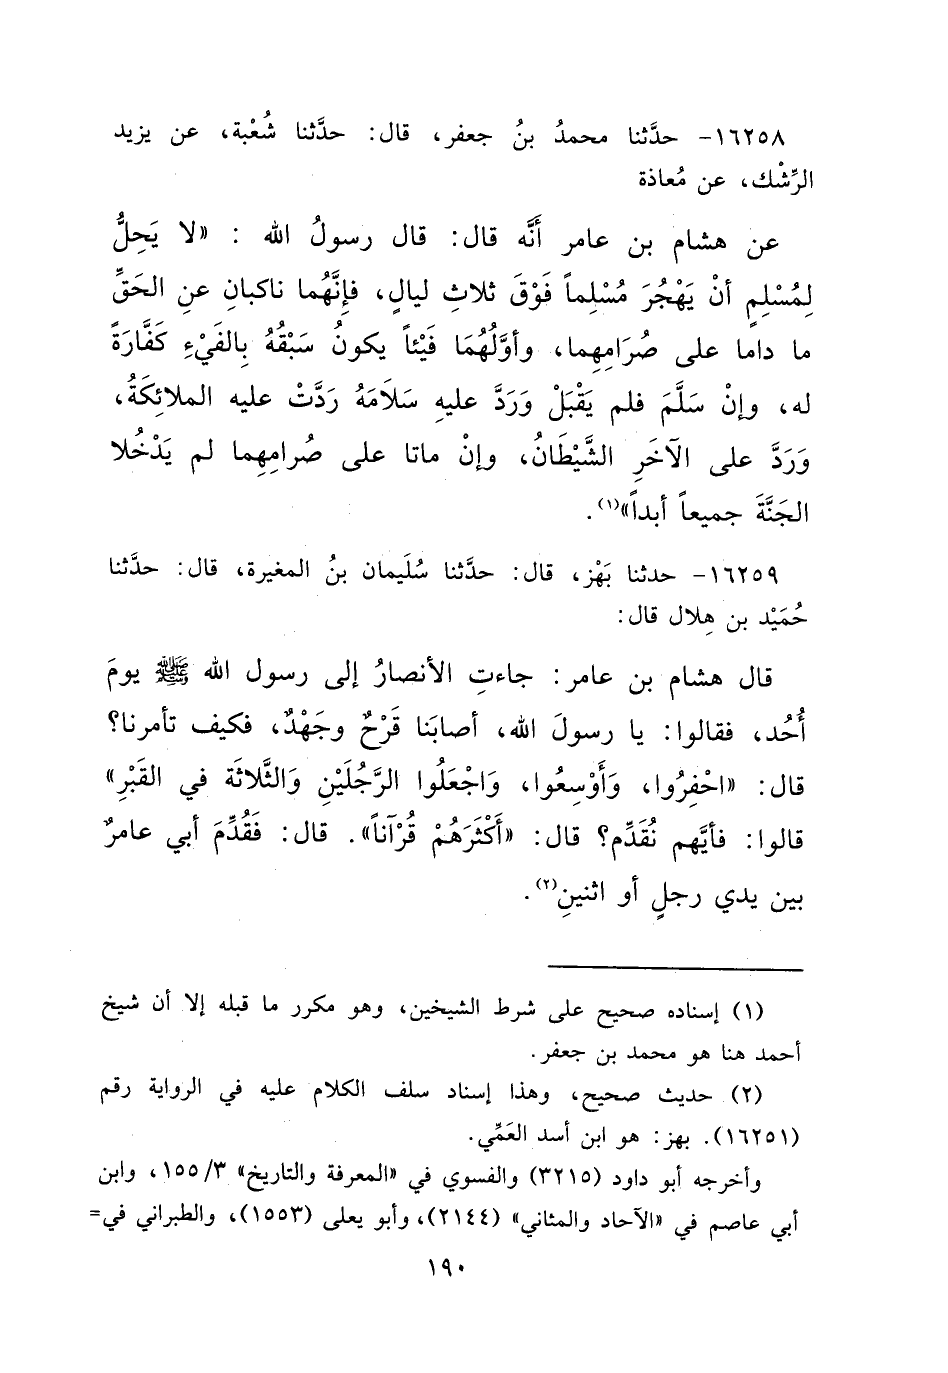 ١٦٢٥٨- حدَّثنا محمدُ بنُ جعفر، قال: حدَّثنا شُعْبة، عن يزيد
الرِّشْك، عن مُعاذة
عن هشام بن عامر أَنَّه قال: قال رسولُ الله : «لا يَحِلُّ
لِمُسْلِمٍ أنْ يَهْجُرَ مُسْلِماً فَوْقَ ثلاثِ ليالٍ، فإِنَّهُما ناكبانِ عنِ الحَقِّ
ما داما على صُرَامِهِما، وأوَّلُهُمَا فَيْئاً يكونُ سَبْقُهُ بِالفَيْءِ كَفَّارَةً
له، وإنْ سَلَّمَ فلم يَقْبَلْ وَرَدَّ عليهِ سَلَامَهُ رَدَّتْ عليه الملائِكَةُ،
وَرَدَّ على الآخَرِ الشَّيْطَانُ، وإنْ ماتا على صُرامِهِما لم يَدْخُلا
الجَنَّةَ جميعاً أبداً»(١).
١٦٢٥٩- حدثنا بَهْز، قال: حدَّثنا سُلَيمان بنُ المغيرة، قال: حدَّثنا
حُمَيْد بن هِلال قال:
قال هشام بن عامر: جاءتِ الأنصارُ إلى رسول الله ﷺ يومَ
أُحُد، فقالوا: يا رسولَ الله، أصابَنا قَرْحٌ وجَهْدٌ، فكيف تأمرنا؟
قال: «احْفِرُوا، وَأَوْسِعُوا، وَاجْعَلُوا الرَّجُلَيْنِ وَالثَّلاثَة في القَبْرِ»
قالوا: فأيَّهم نُقَدِّم؟ قال: «أَكْثَرَهُمْ قُرْآناً». قال: فَقُدِّمَ أبي عامرٌ
بين يدي رجلٍ أو اثنينِ(٢).
(١) إسناده صحيح على شرط الشيخين، وهو مكرر ما قبله إلا أن شيخ
أحمد هنا هو محمد بن جعفر.
(٢) حديث صحيح، وهذا إسناد سلف الكلام عليه في الرواية رقم
(١٦٢٥١). بهز: هو ابن أسد العَمِّي.
وأخرجه أبو داود (٣٢١٥) والفسوي في «المعرفة والتاريخ» ١٥٥/٣، وابن
أبي عاصم في «الآحاد والمثاني» (٢١٤٤)، وأبو يعلى (١٥٥٣)، والطبراني في=
١٩٠